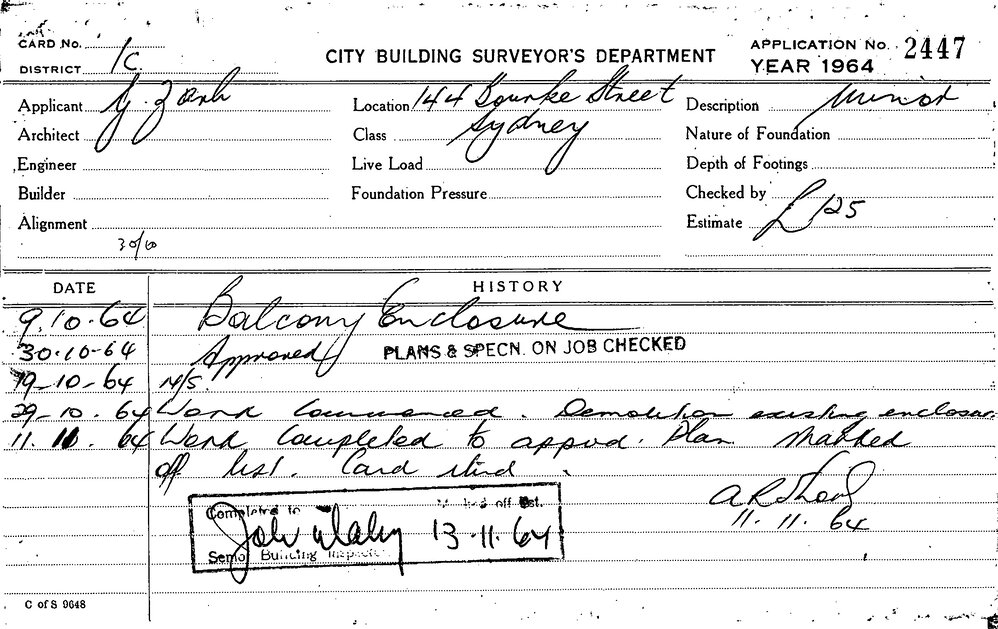 CARD No.
DISTRICT 1C.
CITY BUILDING SURVEYOR'S DEPARTMENT
APPLICATION No. 2447
YEAR 1964
Applicant
Architect
Engineer
Builder
Alignment
30/10
Location 144 Bourke Street
Sydney
Class
Live Load
Foundation Pressure
Description Minor
Nature of Foundation
Depth of Footings
Checked by
Estimate £125
DATE HISTORY
9.10.64 Balcony Enclosure
30.10-64 Approved PLANS & SPECN. ON JOB CHECKED
19-10-64 N/S.
29-10.64 Work Commenced. Demolition existing enclosure
11.11.64 Work Completed to approd. Plan marked
off list. Card
11.11.64
Completed to Marked off list.
13.11.64
Senior Building Inspector
C of S 9648